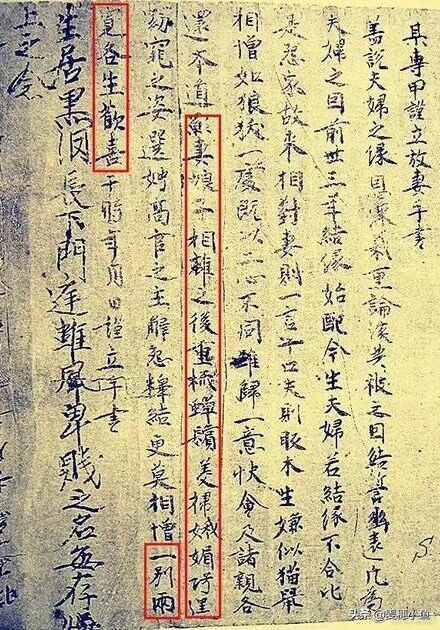 某專甲謹立放妻手書
蓋說夫婦之緣恩深義重論談共被之因結誓幽遠凡為
夫婦之因前世三年結緣始配今生夫婦若結緣不合比
是怨家故來相對妻則一言十口夫則販木生嫌似猫鼠
相憎如狼一處既以二心不同難歸一意快會及諸親各
還本道願妻娘子相離之後重梳蟬鬢美掃娥媚巧逞
窈窕之姿選娉高官之主解怨釋結更莫相憎一別兩
寬各生歡喜于時年月日謹立手書
生居黑長下門庭雖風卑賤之名無存
上之念
头条